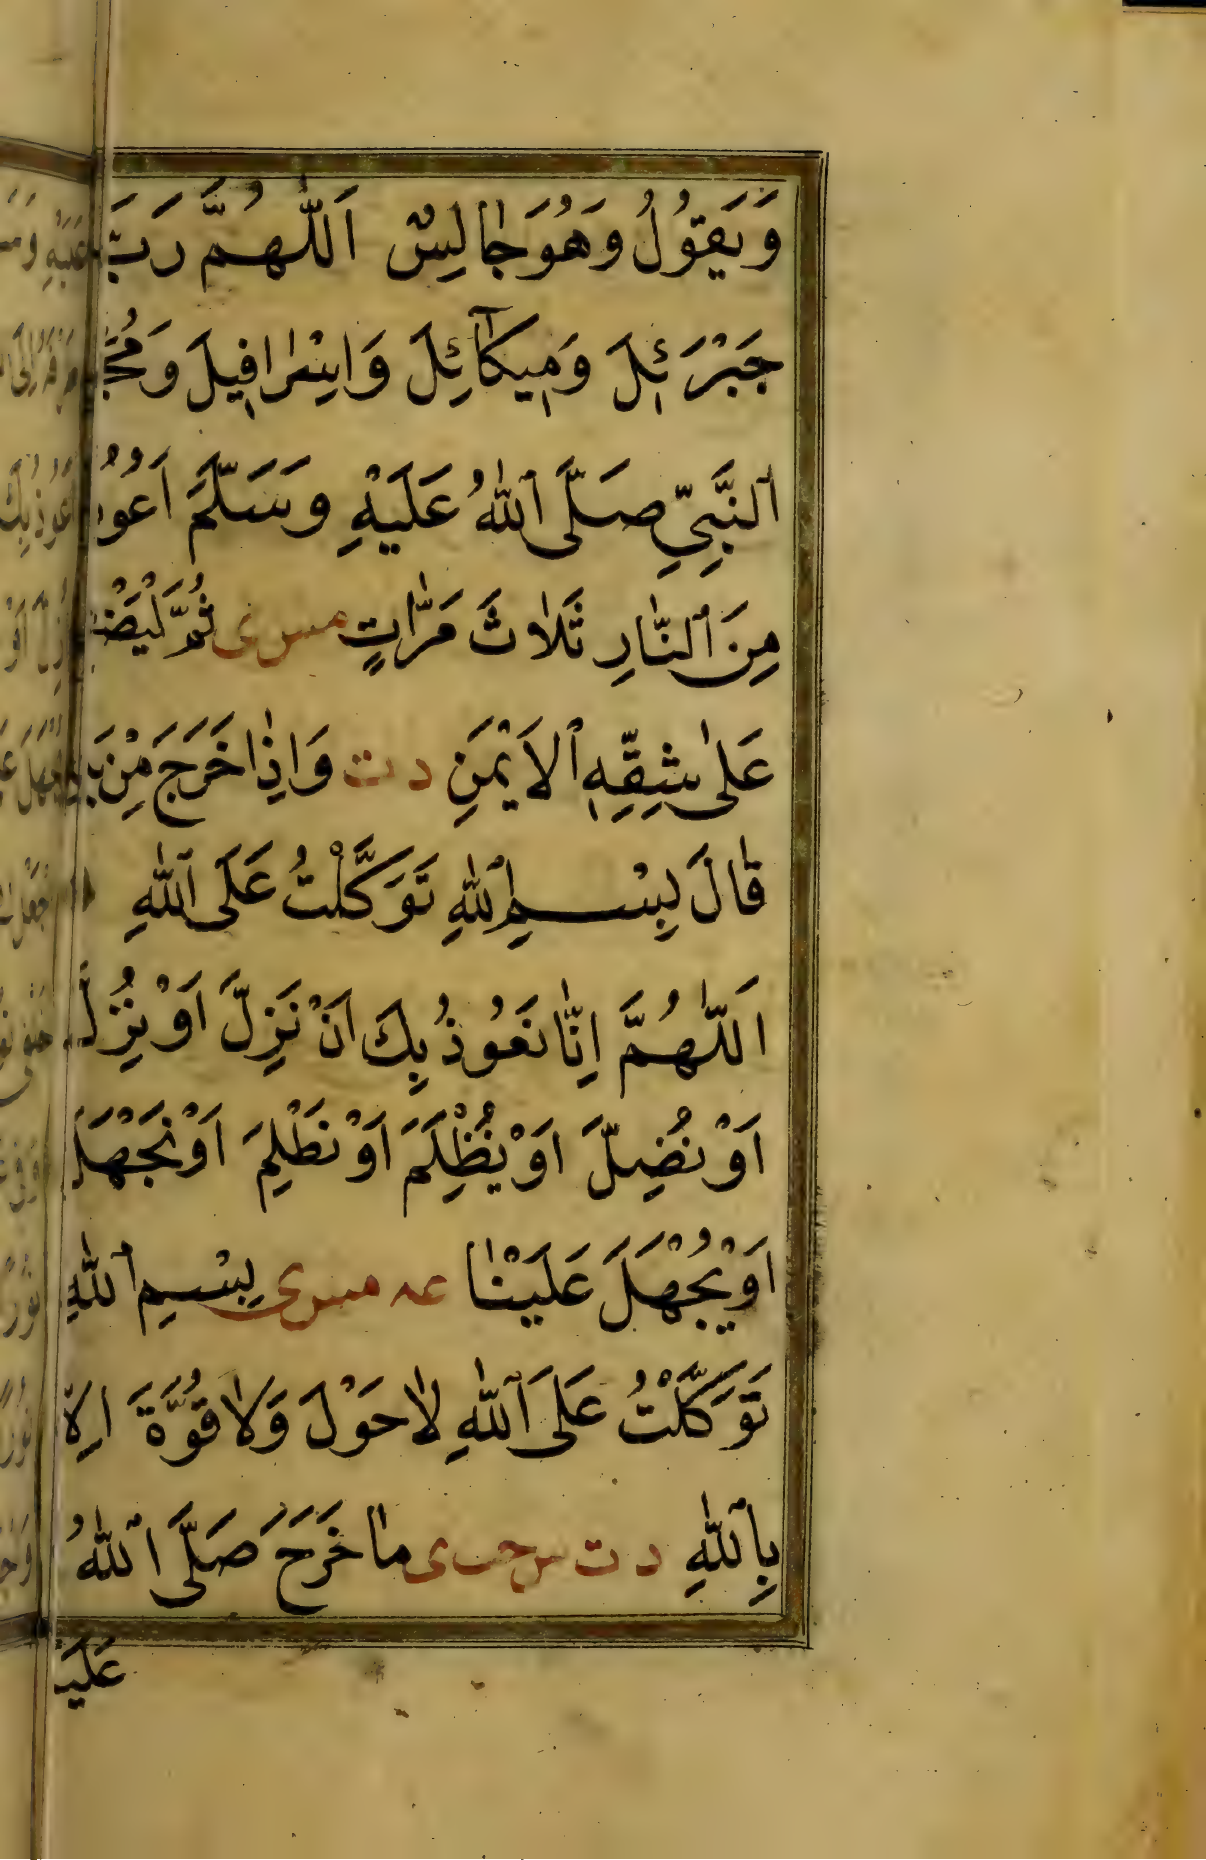 وَيَقُولُ وَهُوَ جَالِسٌ اَللّٰهُمَّ رَبَّ
جَبْرَئِلَ وَمِيكَآئِلَ وَاِسْرَافِيلَ وَمُحَمَّدٍ
ٱلنَّبِيِّ صَلَّى ٱللّٰهُ عَلَيْهِ وَسَلَّمَ اَعُوذُ
مِنَ ٱلنَّارِ ثَلَاثَ مَرَّاتٍ مس ى ثُمَّ لْيَضْ
عَلٰى شِقِّهِ ٱلاَيْمَنِ د ت وَاِذَا خَرَجَ مِنْ
قَالَ بِسْمِ ٱللّٰهِ تَوَكَّلْتُ عَلَى ٱللّٰهِ
اَللّٰهُمَّ اِنَّا نَعُوذُ بِكَ اَنْ نَزِلَّ اَوْ نُزِلَّ
اَوْ نُضِلَّ اَوْ نُظْلَمَ اَوْ نَظْلِمَ اَوْ نَجْهَلَ
اَوْ يُجْهَلَ عَلَيْنَا عه مس ى بِسْمِ ٱللّٰهِ
تَوَكَّلْتُ عَلَى ٱللّٰهِ لَا حَوْلَ وَلَا قُوَّةَ اِلَّا
بِٱللّٰهِ د ت س حب ى مَا خَرَجَ صَلَّى ٱللّٰهُ
عَلَيْ